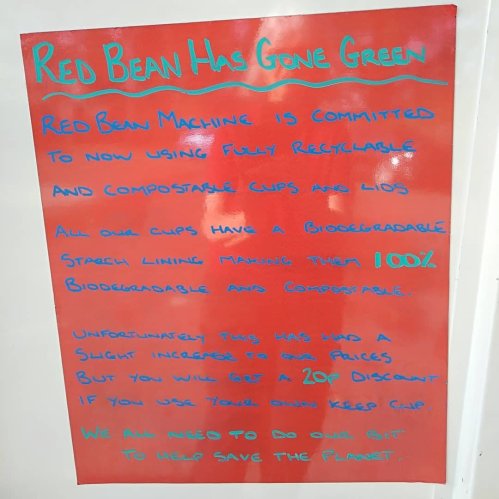 RED BEAN HAS GONE GREEN
RED BEAN MACHINE IS COMMITTED
TO NOW USING FULLY RECYCLABLE
AND COMPOSTABLE CUPS AND LIDS
ALL OUR CUPS HAVE A BIODEGRADABLE
STARCH LINING MAKING THEM 100%
BIODEGRADABLE AND COMPOSTABLE.
UNFORTUNATELY THIS HAS HAD A
SLIGHT INCREASE TO OUR PRICES
BUT YOU WILL GET A 20P DISCOUNT
IF YOU USE YOUR OWN KEEP CUP.
WE ALL NEED TO DO OUR BIT
TO HELP SAVE THE PLANET.